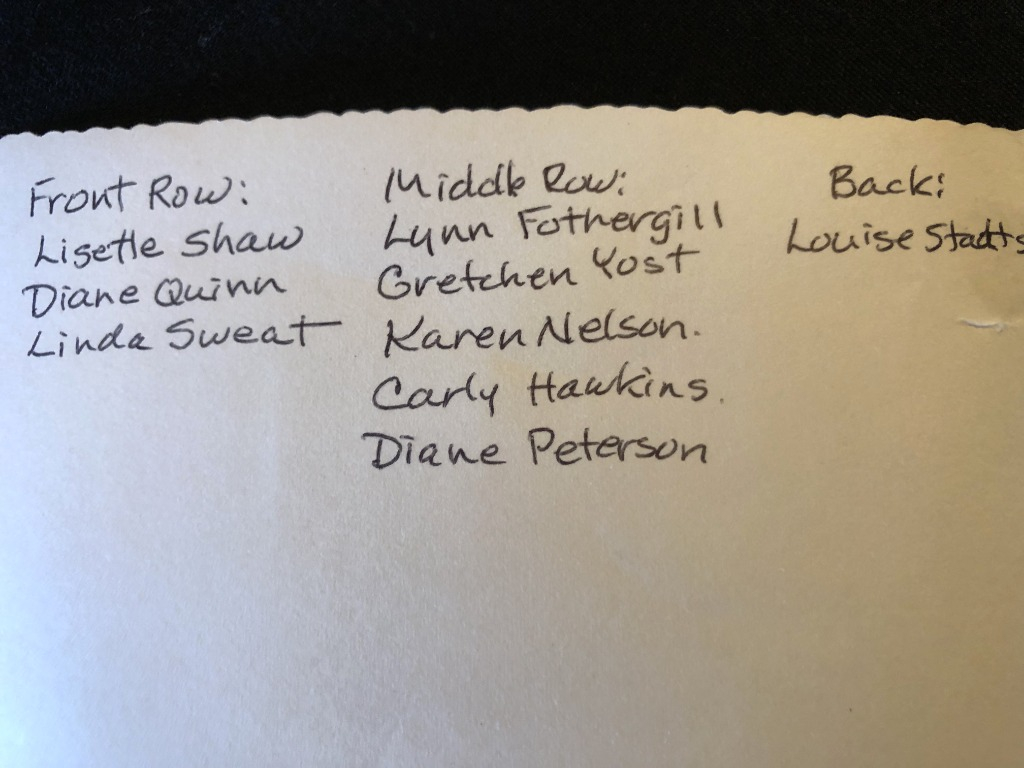 Front Row:
Lisette Shaw
Diane Quinn
Linda Sweat
Middle Row:
Lynn Fothergill
Gretchen Yost
Karen Nelson.
Carly Hawkins.
Diane Peterson
Back:
Louise